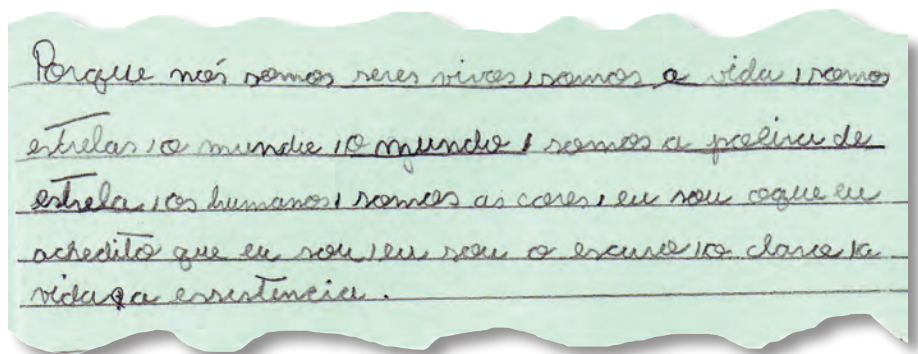 Porque nós somos seres vivos, somos a vida, somos
estrelas, o mundo, o mundo, somos a poeira de
estrela, os humanos, somos as cores, eu sou oque eu
achedito que eu sou, eu sou o escuro, o claro, a
vida, a essistência.